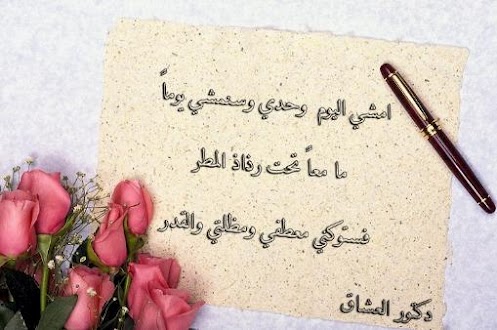 امشي اليوم وحدي وسنمشي يوماً
ما معاً تحت رذاذ المطر
معطفي ومظلتي والقدر
دكتور العشاق